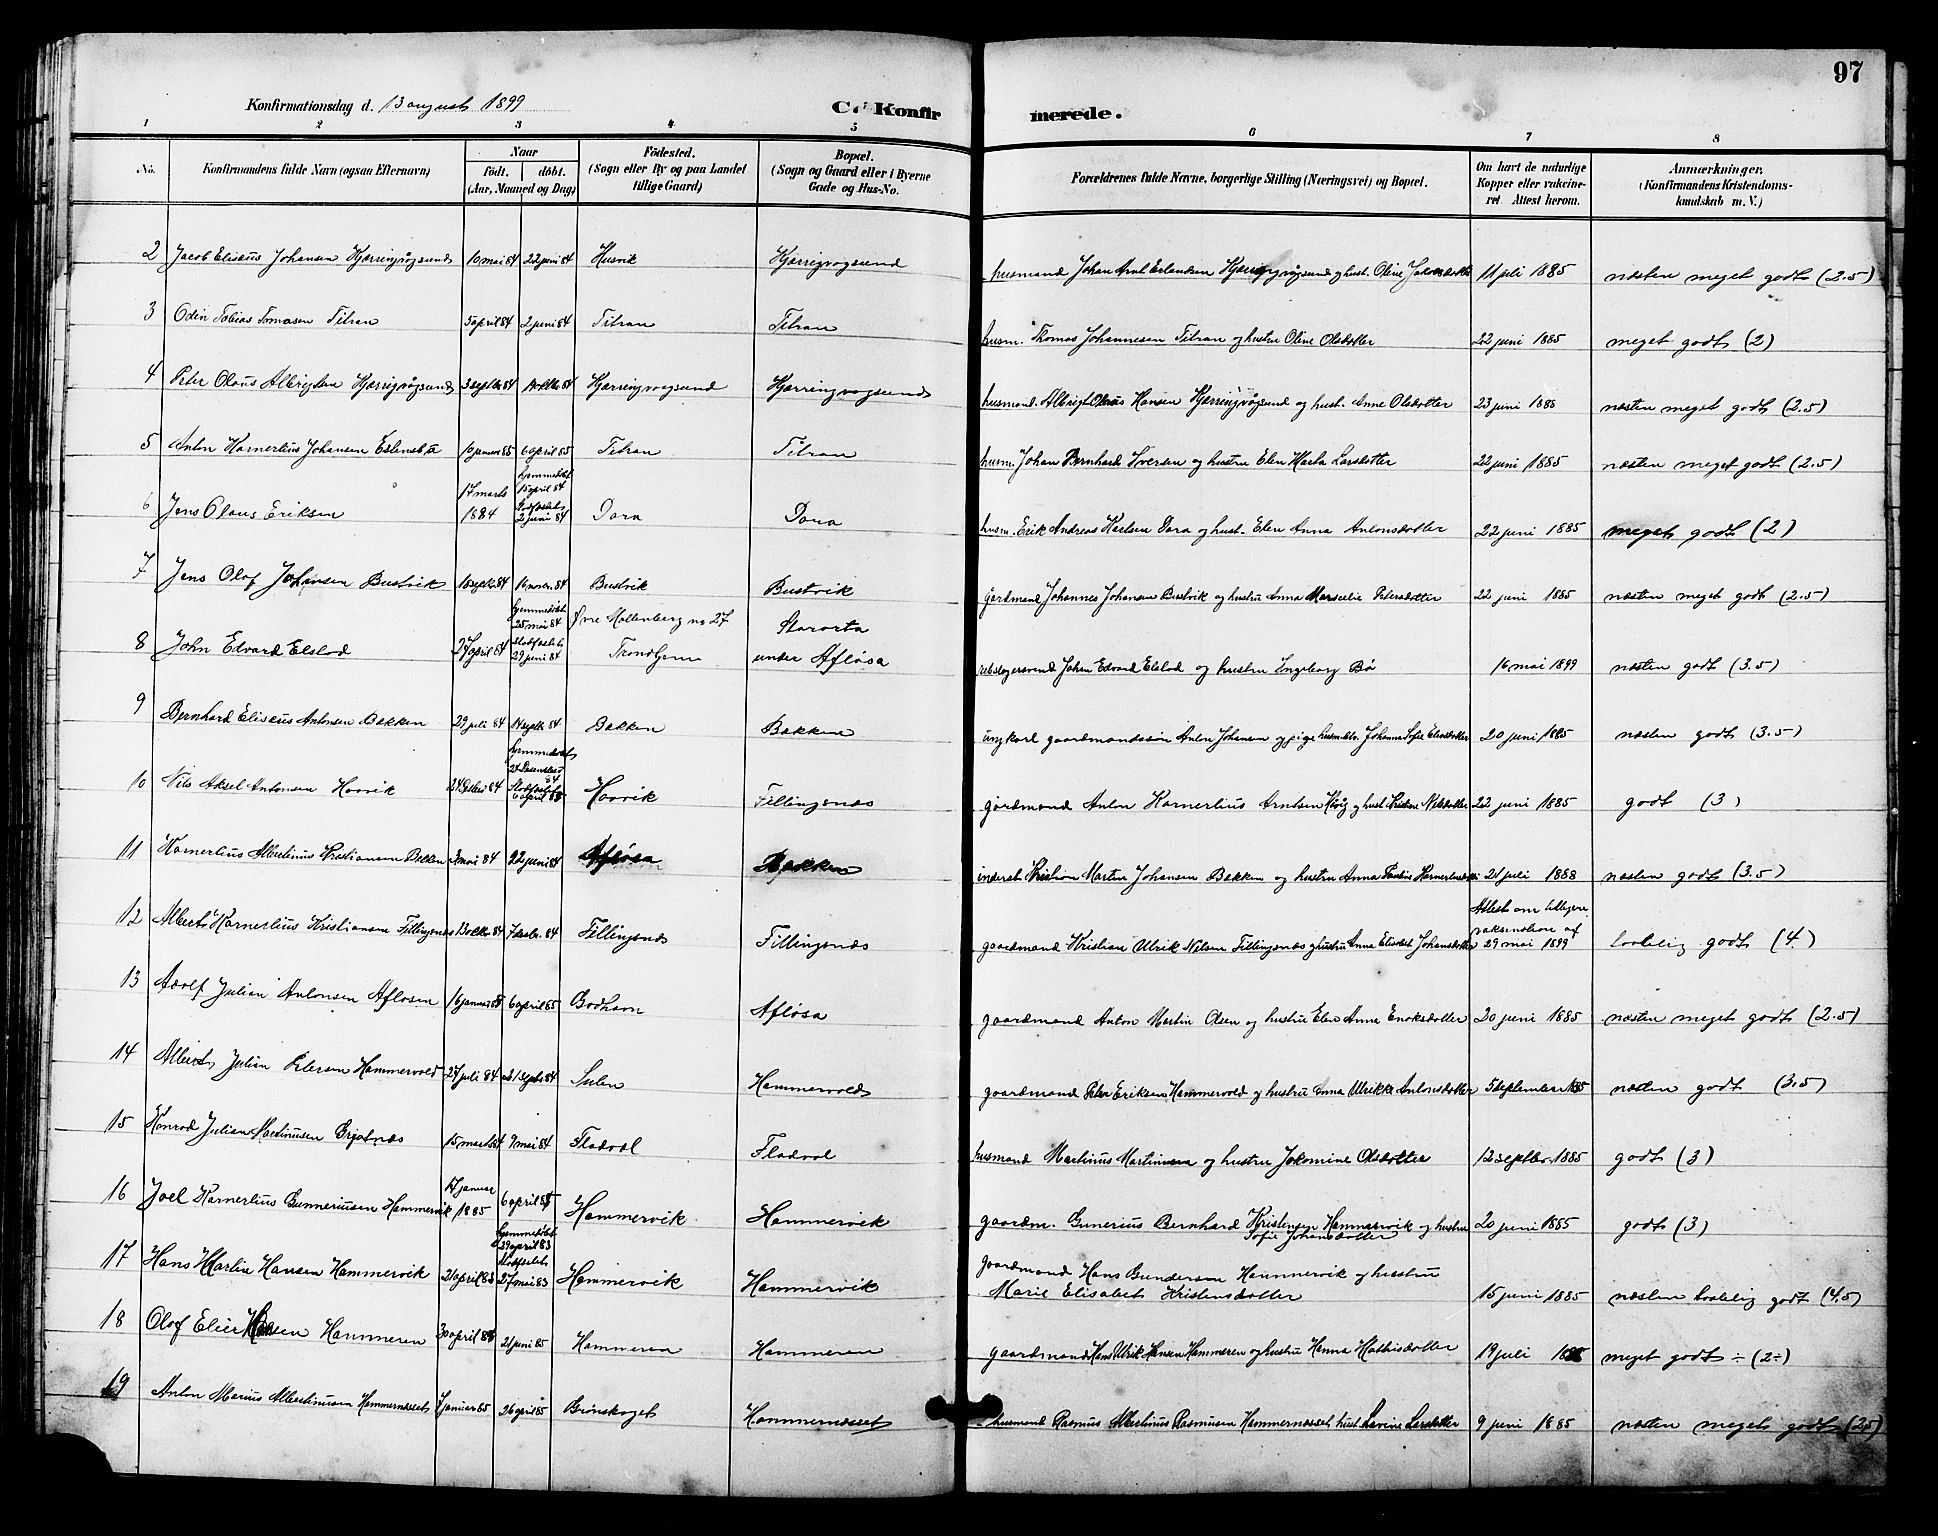 97
Konfirmationsdag d. 13 august 1899
Konfirmerede.
1 2 3 4 5 6 7 8
No. Konfirmandens fulde Navn (ogsaa Efternavn) Naar født. døbt. (Aar, Maaned og Dag) Fødested. (Sogn eller By og paa Landet tillige Gaard) Bopæl. (Sogn og Gaard eller i Byerne Gade og Hus-No. Forældrenes fulde Navne, borgerlige Stilling (Næringsvei) og Bopæl. Om havt de naturlige Kopper eller vakcineret Attest herom. Anmærkninger. (Konfirmandens Kristendomskundskab m. V.)
2 Jacob Elisæus Johansen Kjærringvågsund 10 mai 84 22 juni 84 Husvik Kjærrigvogsund husmand Johan Arnt Erlandsen Kjærrigvågsund og hust. Oline Jakobsdotter 11 juli 1885 næsten meget godt (2.5)
3 Odin Tobias Tomasen Titran 5 april 84 2 juni 84 Titran Titran husm. Thomas Johannesen Titran og hustru Oline Olsdotter 22 juni 1885 meget godt (2)
4 Peter Olaus Albrigtsen Kjærrigvågsund 3 septbr 84 Kjærringvogsund Kjærringvogsund husmand. Albrigt Olaus Hansen Kjærringvågsund og hust. Anne Olsdotter 23 juni 1885 næsten meget godt (2.5)
5 Anton Kornerlius Johansen 10 januar 85 6 april 85 Titran Titran husm. Johan Bernhard Iversen og hustru Elen Marta Larsdotter 22 juni 1885 næsten meget godt (2.5)
6 Jens Olaus Eriksen 17 marts 1884 hjemmedøbt 15 april 84 Stadfæstet 2 juni 84 Dora Dora husm. Erik Andreas Karlsen Dora og hust. Elen Anna Antonsdotter 22 juni 1885 meget godt (2)
7 Jens Olaf Johansen Bustvik 16 novbr. 84 Bustvik Bustvik gårdmand Johannes Johansen Bustvik og hustru Anna Marselie Petersdotter 22 juni 1885 næsten meget godt (2.5)
8 John Edvard Elslad 27 april 84 hjemmedøbt 25 mai 84 Stadfæstet 29 juni 84 Øvre Møllenberg no 27 Trondhjem under Afløsa Johan Edvard Elslad og hustru Ingeborg Bø 16 mai 1899 næsten godt (3.5)
9 Bernhard Elisæus Antonsen Bakken 29 juli 84 14 septbr 84 Bakken Bakken ungkarl gaardmandssøn Anton Johansen og pige Johanna Sofie 20 juni 1885 næsten godt (3.5)
10 Nils Aksel Antonsen Hoovik hjemmedøbt Stadfæstet 6 april 85 Hoovik Fillingsnæs gårdmand Anton Kornerlius Arntsen og hust Nilsdotter 22 juni 1885 godt (3)
11 Kornerlius Albertinus Kristiansen Bakken 3 mai 84 22 juni 84 Afløsa Bakken inderst Kristian Martin Johansen Bakken og hustru Anna Pauline 21 juli 1888 næsten godt (3.5)
12 Albert Kornerlius Kristiansen Fillingsnæs 84 7 desbr. 84 Fillingsnæs Fillingsnæs gaardmand Kristian Ulrik Nilsen Fillingsnæs og hustru Anna Elisabet Johansdotter Attest om tidligere vaksination af 29 mai 1899 taalelig godt (4)
13 Adolf Julian Antonsen Afløsen 16 januar 85 6 april 85 Afløsa gaardmand Anton Martin Olsen og hustru Elen Anna Enoksdotter 20 juni 1885 næsten meget godt (2.5)
14 Albert Julian Petersen Hammervold 27 juli 84 21 septbr 84 Sulen Hammervold gaardmand Peter Eriksen Hammervold og hustru Anna Ulrikke Antonsdotter 5 september 1885 næsten godt (3.5)
15 Konrad Julian Martinusen Grjotnæs 15 marts 84 9 mai 84 Fladval Fladval husmand Martinus Martinusen og hustru Jakomine Olsdotter 12 septbr. 1885 godt (3)
16 Joel Kornerlius Gunneriusen Hammervik 17 januar 1885 6 april 85 Hammervik Hammervik gaardm. Gunerius Bernhard Kristensen Hammervik og hustru Sofie Johansdotter 20 juni 1885 godt (3)
17 Hans Martin Hansen Hammervik 21 april 83 hjemmedøbt 29 april 83 Stadfæstet 27 mai 83 Hammervik Hammervik gaardmand Hans Gundersen Hammervik og hustru Marie Elisabet Kristensdotter 15 juni 1885 næsten taalelig godt (4.5)
18 Olaf Elier Hansen Hammeren 21 juni 85 Hammeren Hammeren gaardmand Hans Ulrik Hansen Hammeren og hustru Hanna Mathisdotter 19 juli meget godt ÷ (2÷)
19 Anton Marius Albertinusen Hammernæsset 7 januar 85 26 april 85 Brønskaget Hammernæsset husmand Rasmus Albertinus Rasmusen Hammernæsset hust Lovine Larsdotter 9 juni 1885 næsten meget godt (2.5)